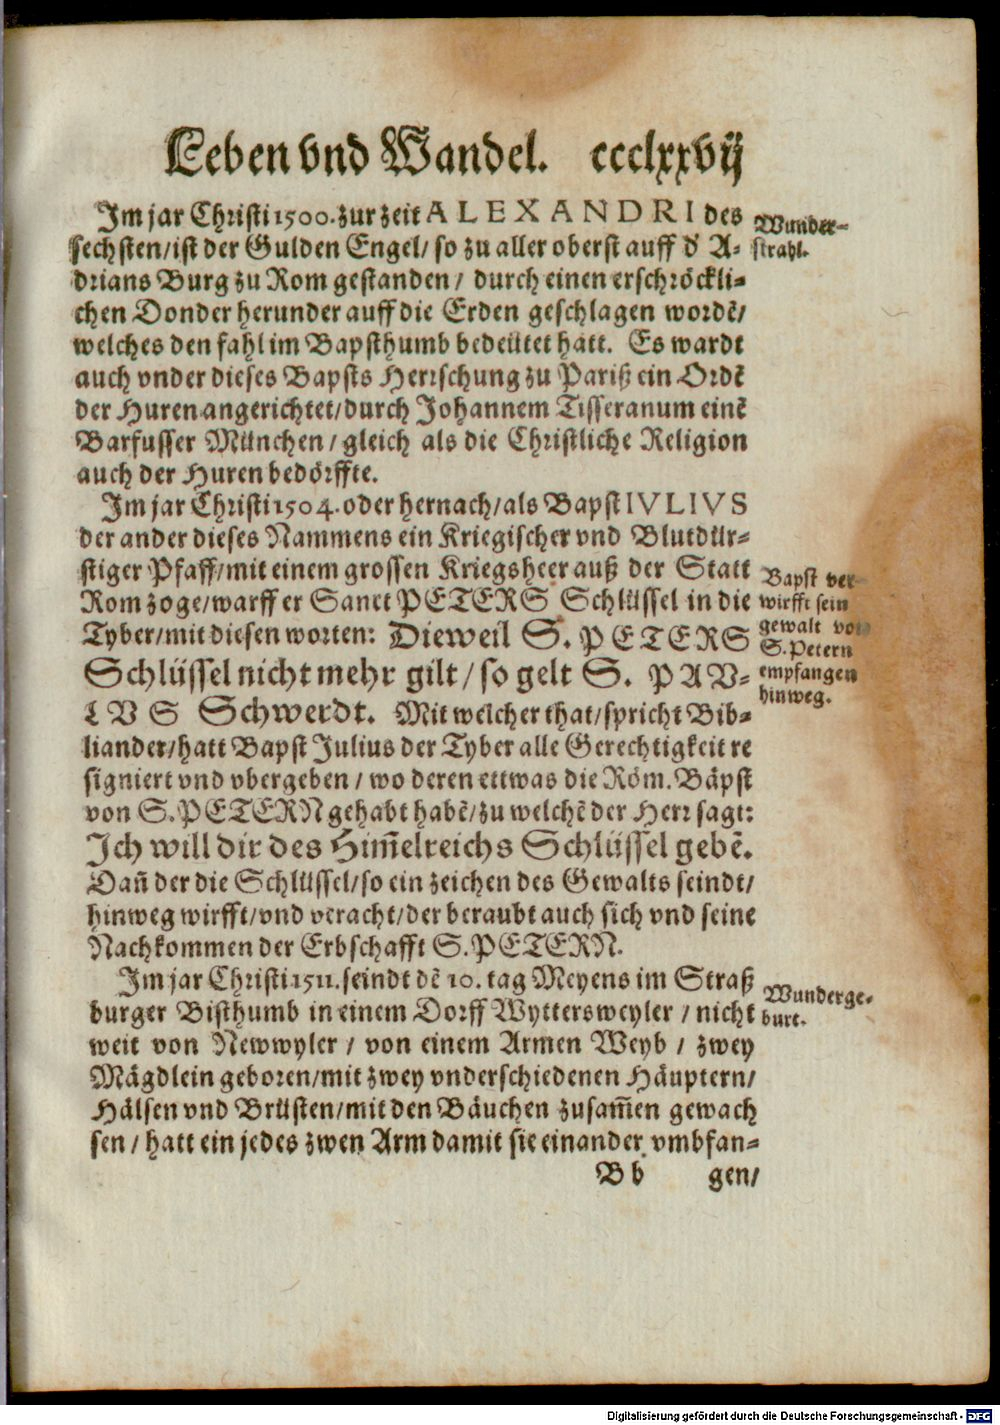 Leben vnd Wandel. ccclxxvij
Im jar Christi 1500. zur zeit ALEXANDRI des
sechsten/ist der Gulden Engel/ so zu aller oberst auff d' A-
drians Burg zu Rom gestanden / durch einen erschröckli-
chen Donder herunder auff die Erden geschlagen wordẽ/
welches den fahl im Bapsthumb bedeütet hatt. Es wardt
auch vnder dieses Bapsts Herrschung zu Pariß ein Ordẽ
der Huren angerichtet/durch Johannem Tisseranum einẽ
Barfusser München / gleich als die Christliche Religion
auch der Huren bedörffte.
Im jar Christi 1504. oder hernach/als Bapst IVLIVS
der ander dieses Nammens ein Kriegischer vnd Blutdür-
stiger Pfaff/mit einem grossen Kriegsheer auß der Statt
Rom zoge/warff er Sanct PETERS Schlüssel in die
Tyber/mit diesen worten: Dieweil S. PETERS
Schlüssel nicht mehr gilt / so gelt S. PAV-
LVS Schwerdt. Mit welcher that/spricht Bib-
liander/hatt Bapst Julius der Tyber alle Gerechtigkeit re
signiert vnd vbergeben / wo deren ettwas die Röm. Bäpst
von S. PETERN gehabt habẽ/zu welchẽ der Herr sagt:
Ich will dir des Him̃elreichs Schlüssel gebẽ.
Dañ der die Schlüssel/so ein zeichen des Gewalts seindt/
hinweg wirfft/vnd veracht/der beraubt auch sich vnd seine
Nachkommen der Erbschafft S. PETERN.
Im jar Christi 1511. seindt dẽ 10. tag Meyens im Straß
burger Bisthumb in einem Dorff Wyttersweyler / nicht
weit von Newwyler / von einem Armen Weyb / zwey
Mägdlein geboren/mit zwey vnderschiedenen Häuptern/
Hälsen vnd Brüsten/mit den Bäuchen zusam̃en gewach
sen / hatt ein jedes zwen Arm damit sie einander vmbfan-
Bb gen/
Wunder-
strahl.
Bapst ver-
wirfft sein
gewalt von
S. Petern
empfangen
hinweg.
Wunderge-
burt.
Digitalisierung gefördert durch die Deutsche Forschungsgemeinschaft - DFG